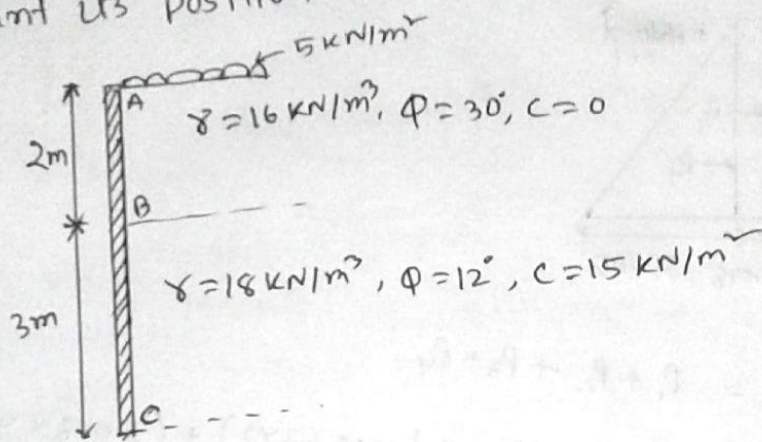 its
5 KN/m²
A
γ=16 KN/m³, φ=30°, C=0
2m
B
γ=18 KN/m³, φ=12°, C=15 KN/m²
3m
C